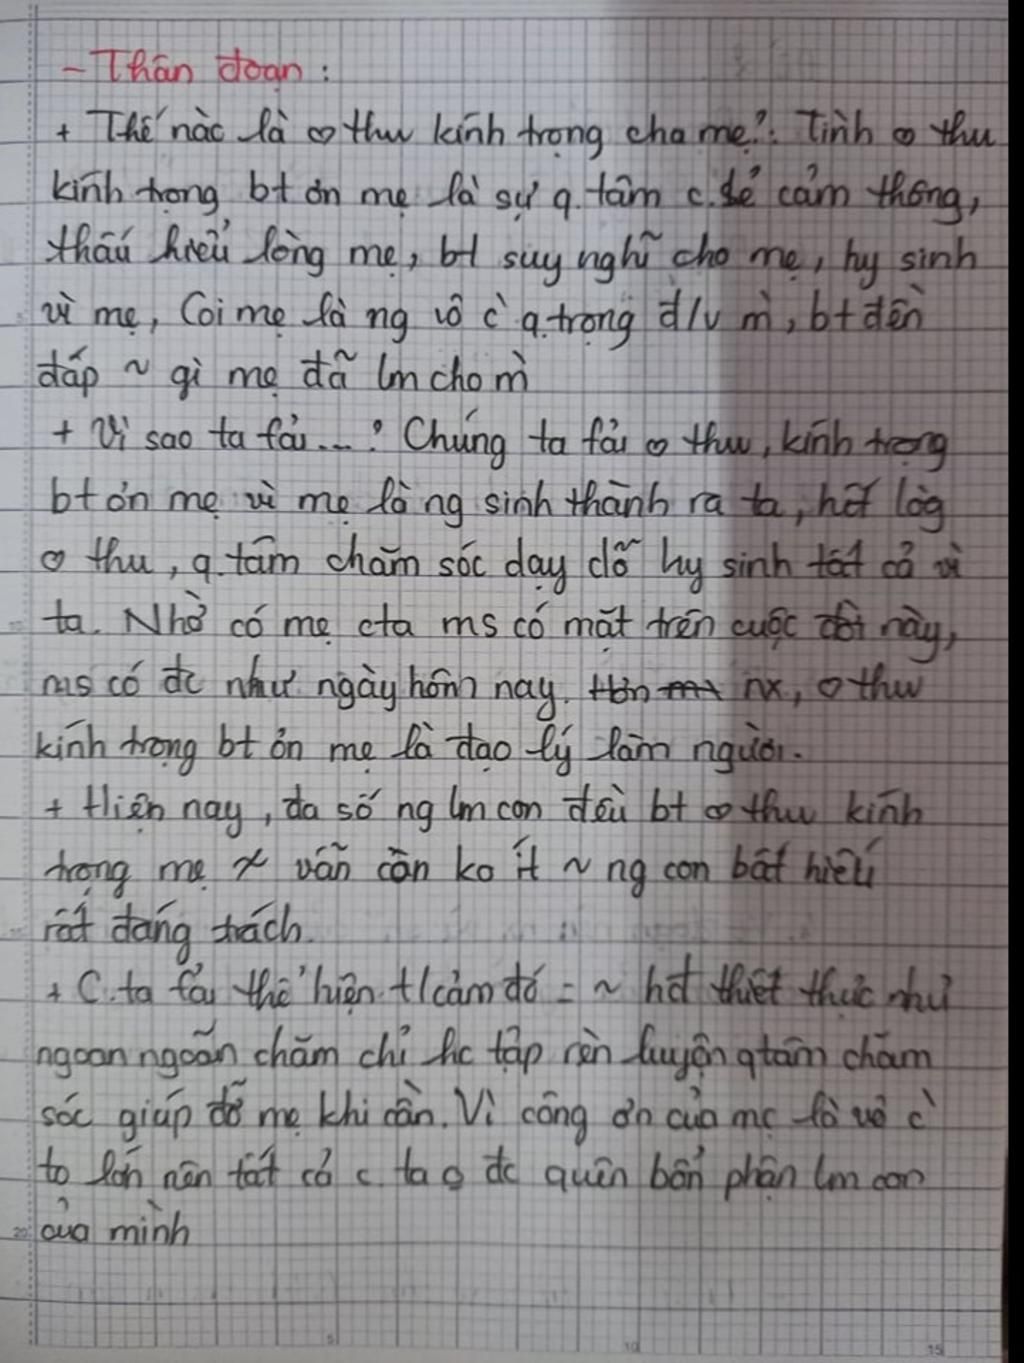 - Thân đoạn:
+ Thế nào là ∞ thư kính trọng cha mẹ?: Tình ∞ thư
kính trọng bt ơn mẹ là sự q.tâm c.sẻ cảm thông,
thấu hiểu lòng mẹ, bt suy nghĩ cho mẹ, hy sinh
vì mẹ, Coi mẹ là ng vô c̀ q.trọng đ/v m̀, bt đền
đáp ~ gì mẹ đã lm cho m̀
+ Vì sao ta fải...? Chúng ta fải ∞ thư, kính trọng
bt ơn mẹ vì mẹ là ng sinh thành ra ta, hết lòg
∞ thư, q.tâm chăm sóc dạy dỗ hy sinh tất cả vì
ta. Nhờ có mẹ cta ms có mặt trên cuộc đời này,
ms có đc như ngày hôm nay. nx, ∞ thư
kính trọng bt ơn mẹ là đạo lý làm người.
+ Hiện nay, đa số ng lm con đều bt ∞ thư kính
trọng mẹ vẫn còn ko ít ~ ng con bất hiếu
rất đáng trách.
+ C.ta fải thể hiện t/cảm đó = ~ hđ thiết thực như
ngoan ngoãn chăm chỉ hc tập rèn luyện qtâm chăm
sóc giúp đỡ mẹ khi cần. Vì công ơn của mẹ là vô c̀
to lớn nên tất cả c ta o đc quên bổn phận lm con
của mình